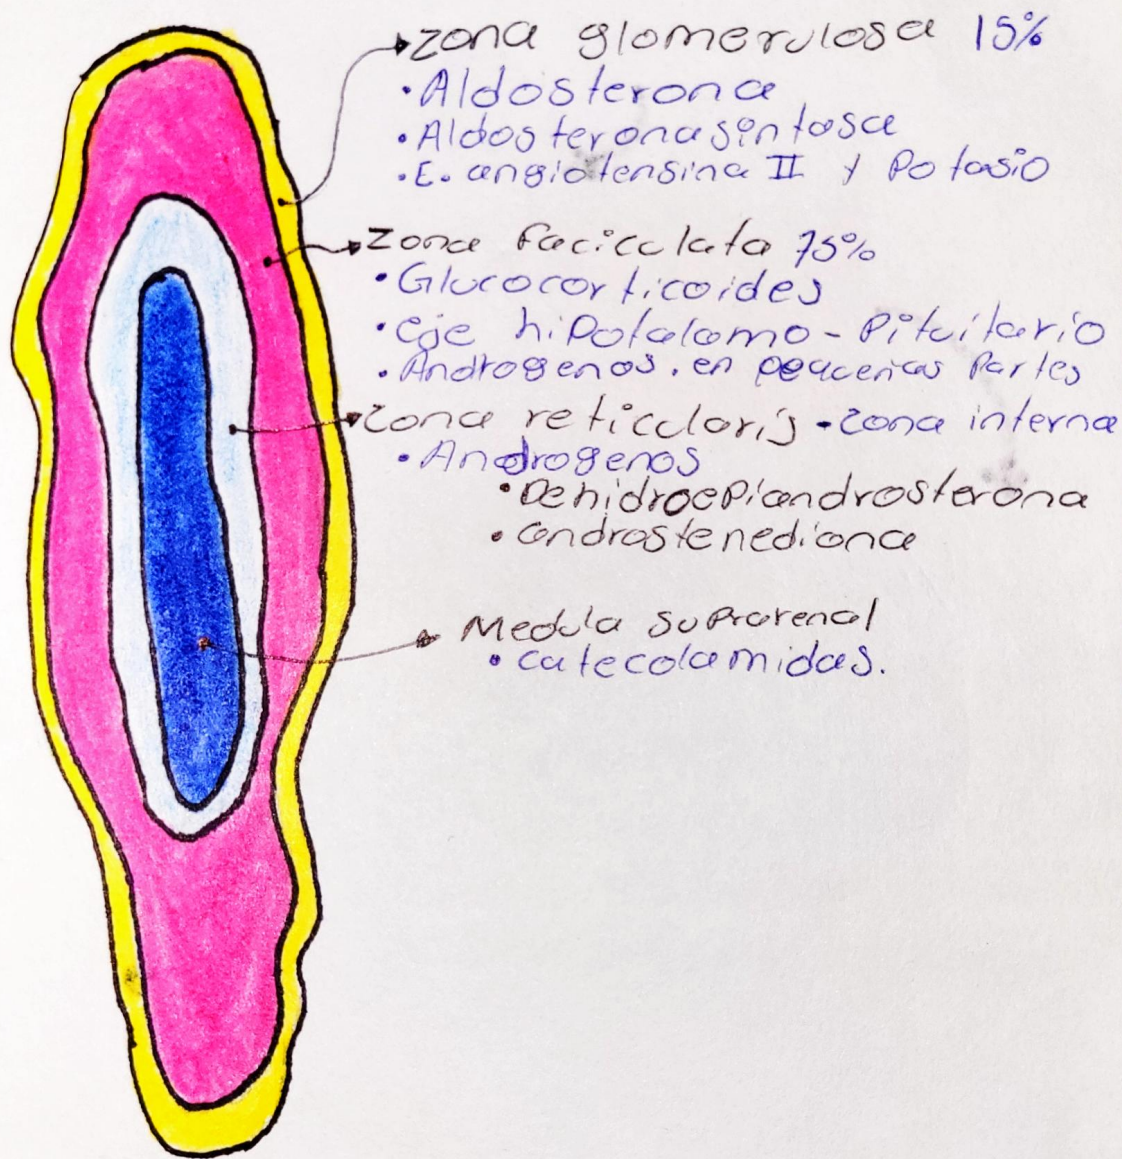 zona glomerulosa 15%
• Aldosterona
• Aldosteronasintasa
• E. angiotensina II y Potasio
Zona faciculata 75%
• Glucocorticoides
• eje hipotalamo - Pituitario
• Androgenos. en pequeñas Partes
Zona reticularis • zona interna
• Androgenos
• Dehidroepiandrosterona
• androstenediona
Medula suprarenal
• catecolamidas.